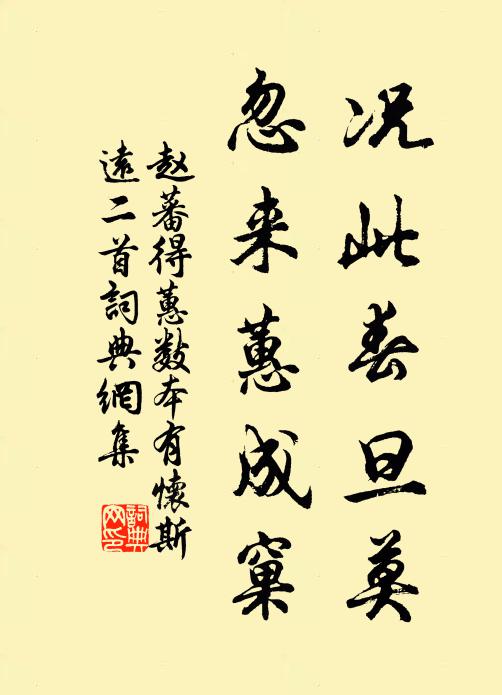 况此春旦莫
忽来蕙成窠
赵蕃得蕙数本有懷斯
遠二首詞典網集
詞典网印